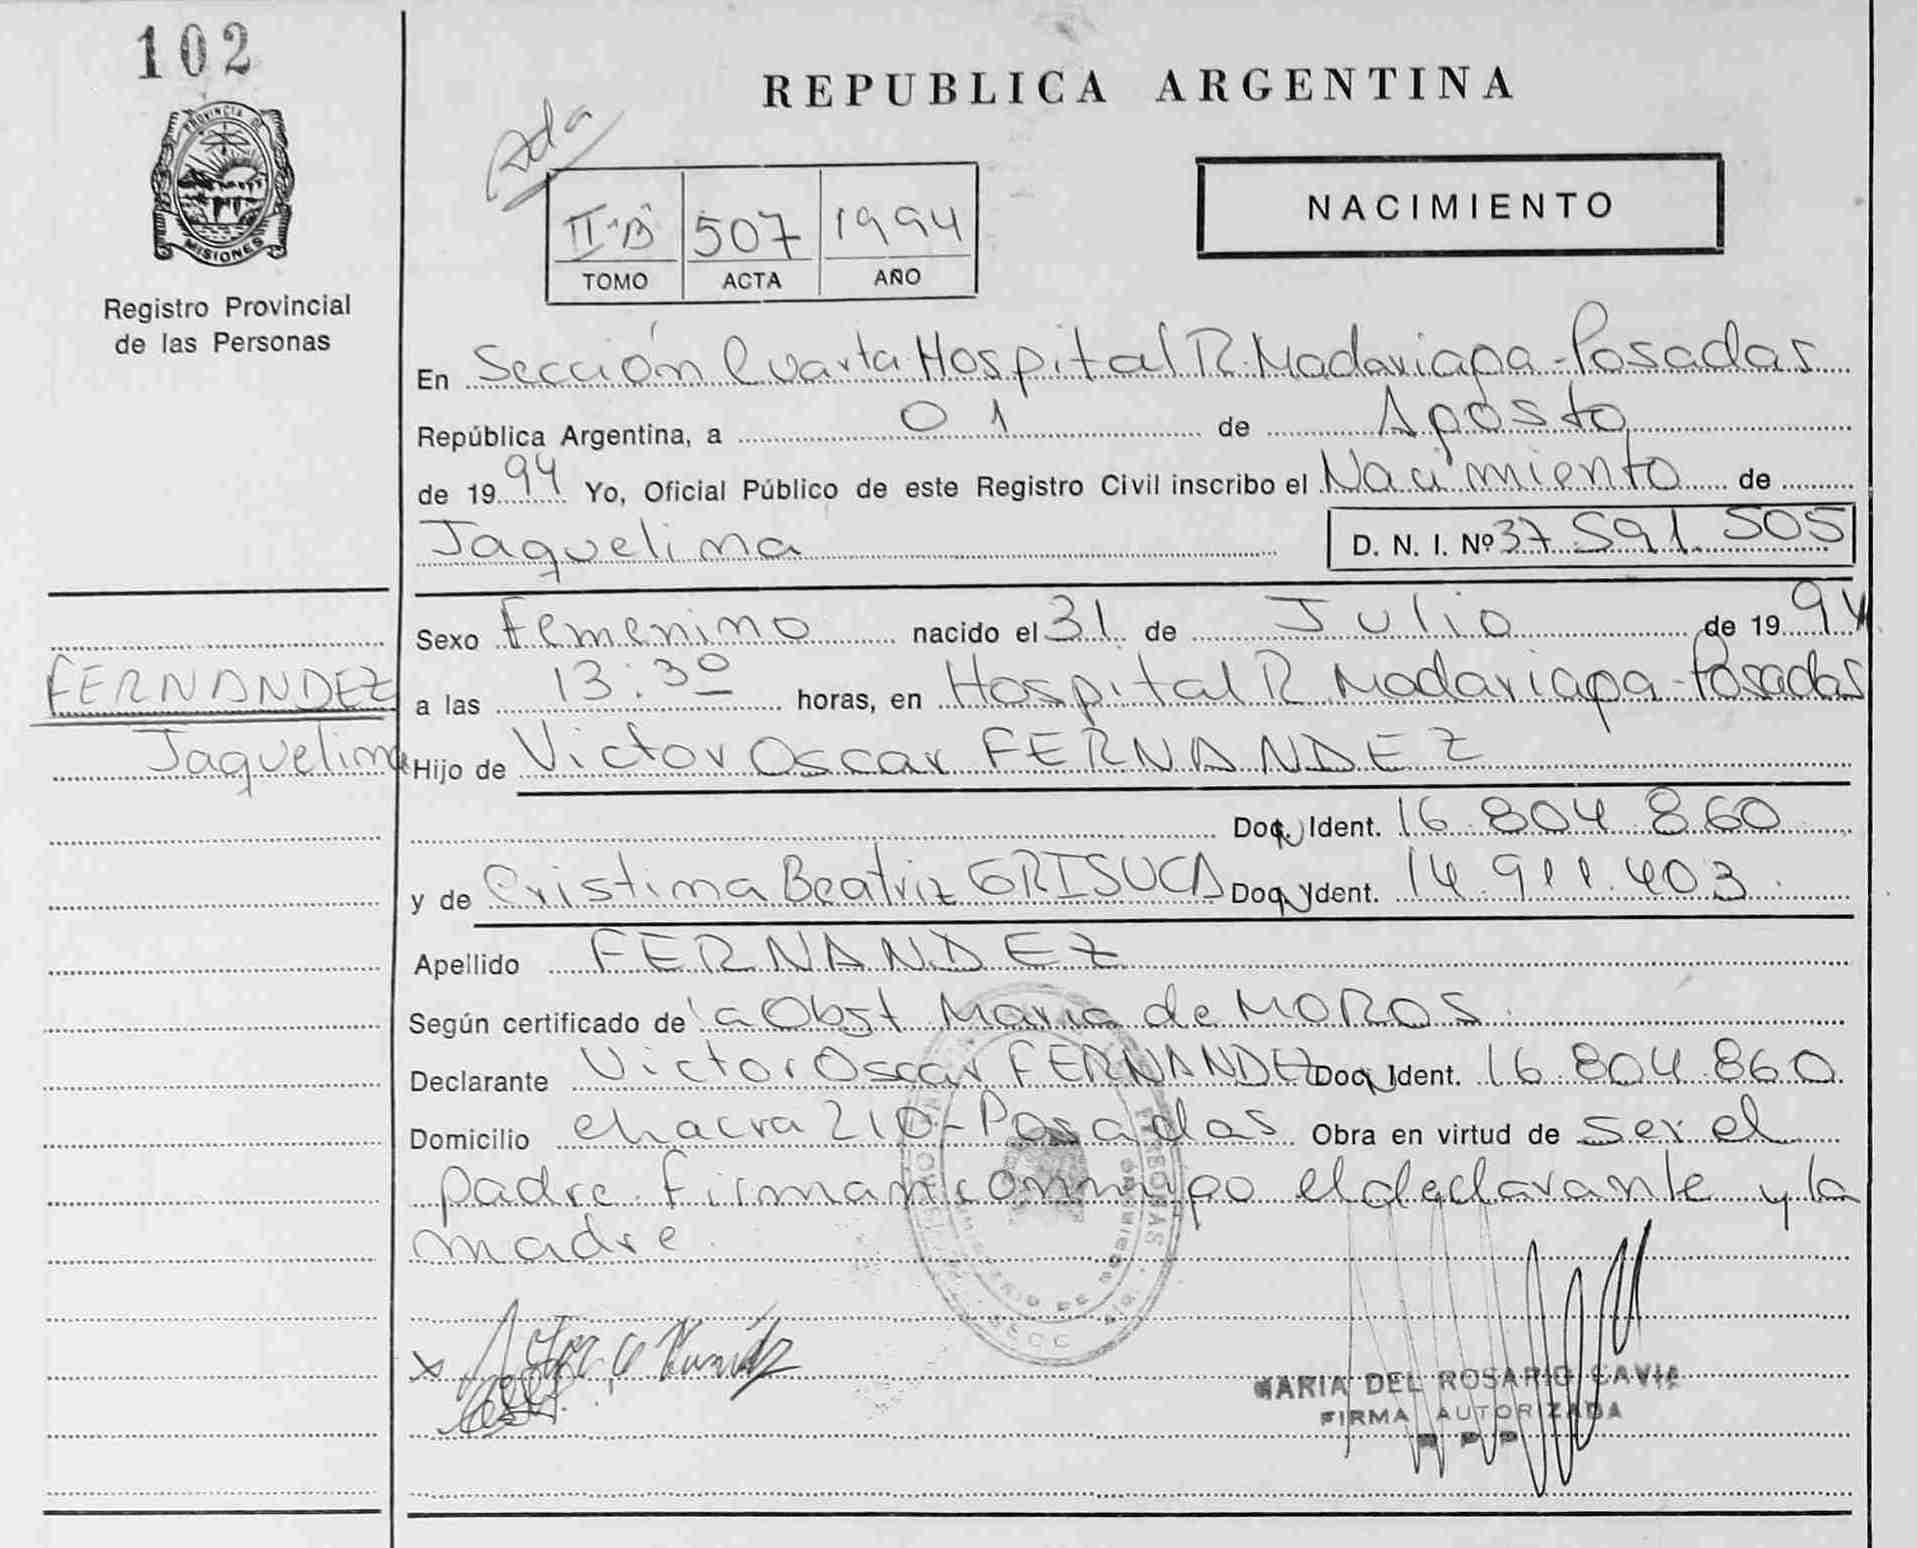 102
PROVINCIA DE
MISIONES
Registro Provincial
de las Personas
REPUBLICA ARGENTINA
Ada
NACIMIENTO
II "B" 507 1994
TOMO ACTA AÑO
En Sección Cuarta Hospital R. Madariaga - Posadas
República Argentina, a 01 de Agosto
de 1994 Yo, Oficial Público de este Registro Civil inscribo el Nacimiento de
Jaquelina D. N. I. Nº 37.591.505
Sexo Femenino nacido el 31 de Julio de 1994
FERNANDEZ
a las 13:30 horas, en Hospital R. Madariaga - Posadas
Jaquelina
Hijo de Victor Oscar FERNANDEZ
Doc. Ident. 16.804.860
y de Cristina Beatriz GRISUCA Doc. Ident. 14.911.403.
Apellido FERNANDEZ
Según certificado de la Obst Maria de MOROS.
Declarante Victor Oscar FERNANDEZ Doc. Ident. 16.804.860
Domicilio chacra 210 - Posadas Obra en virtud de ser el
padre. Firman conmigo el declarante y la
madre.
MARIA DEL ROSARIO CAVIA
FIRMA AUTORIZADA
R P P